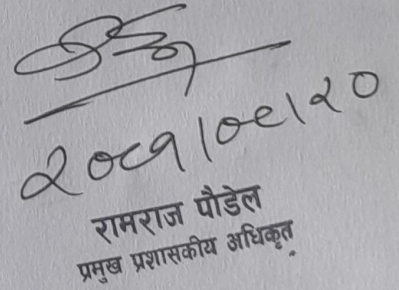 २०८१।०८।२०
रामराज पौडेल
प्रमुख प्रशासकीय अधिकृत